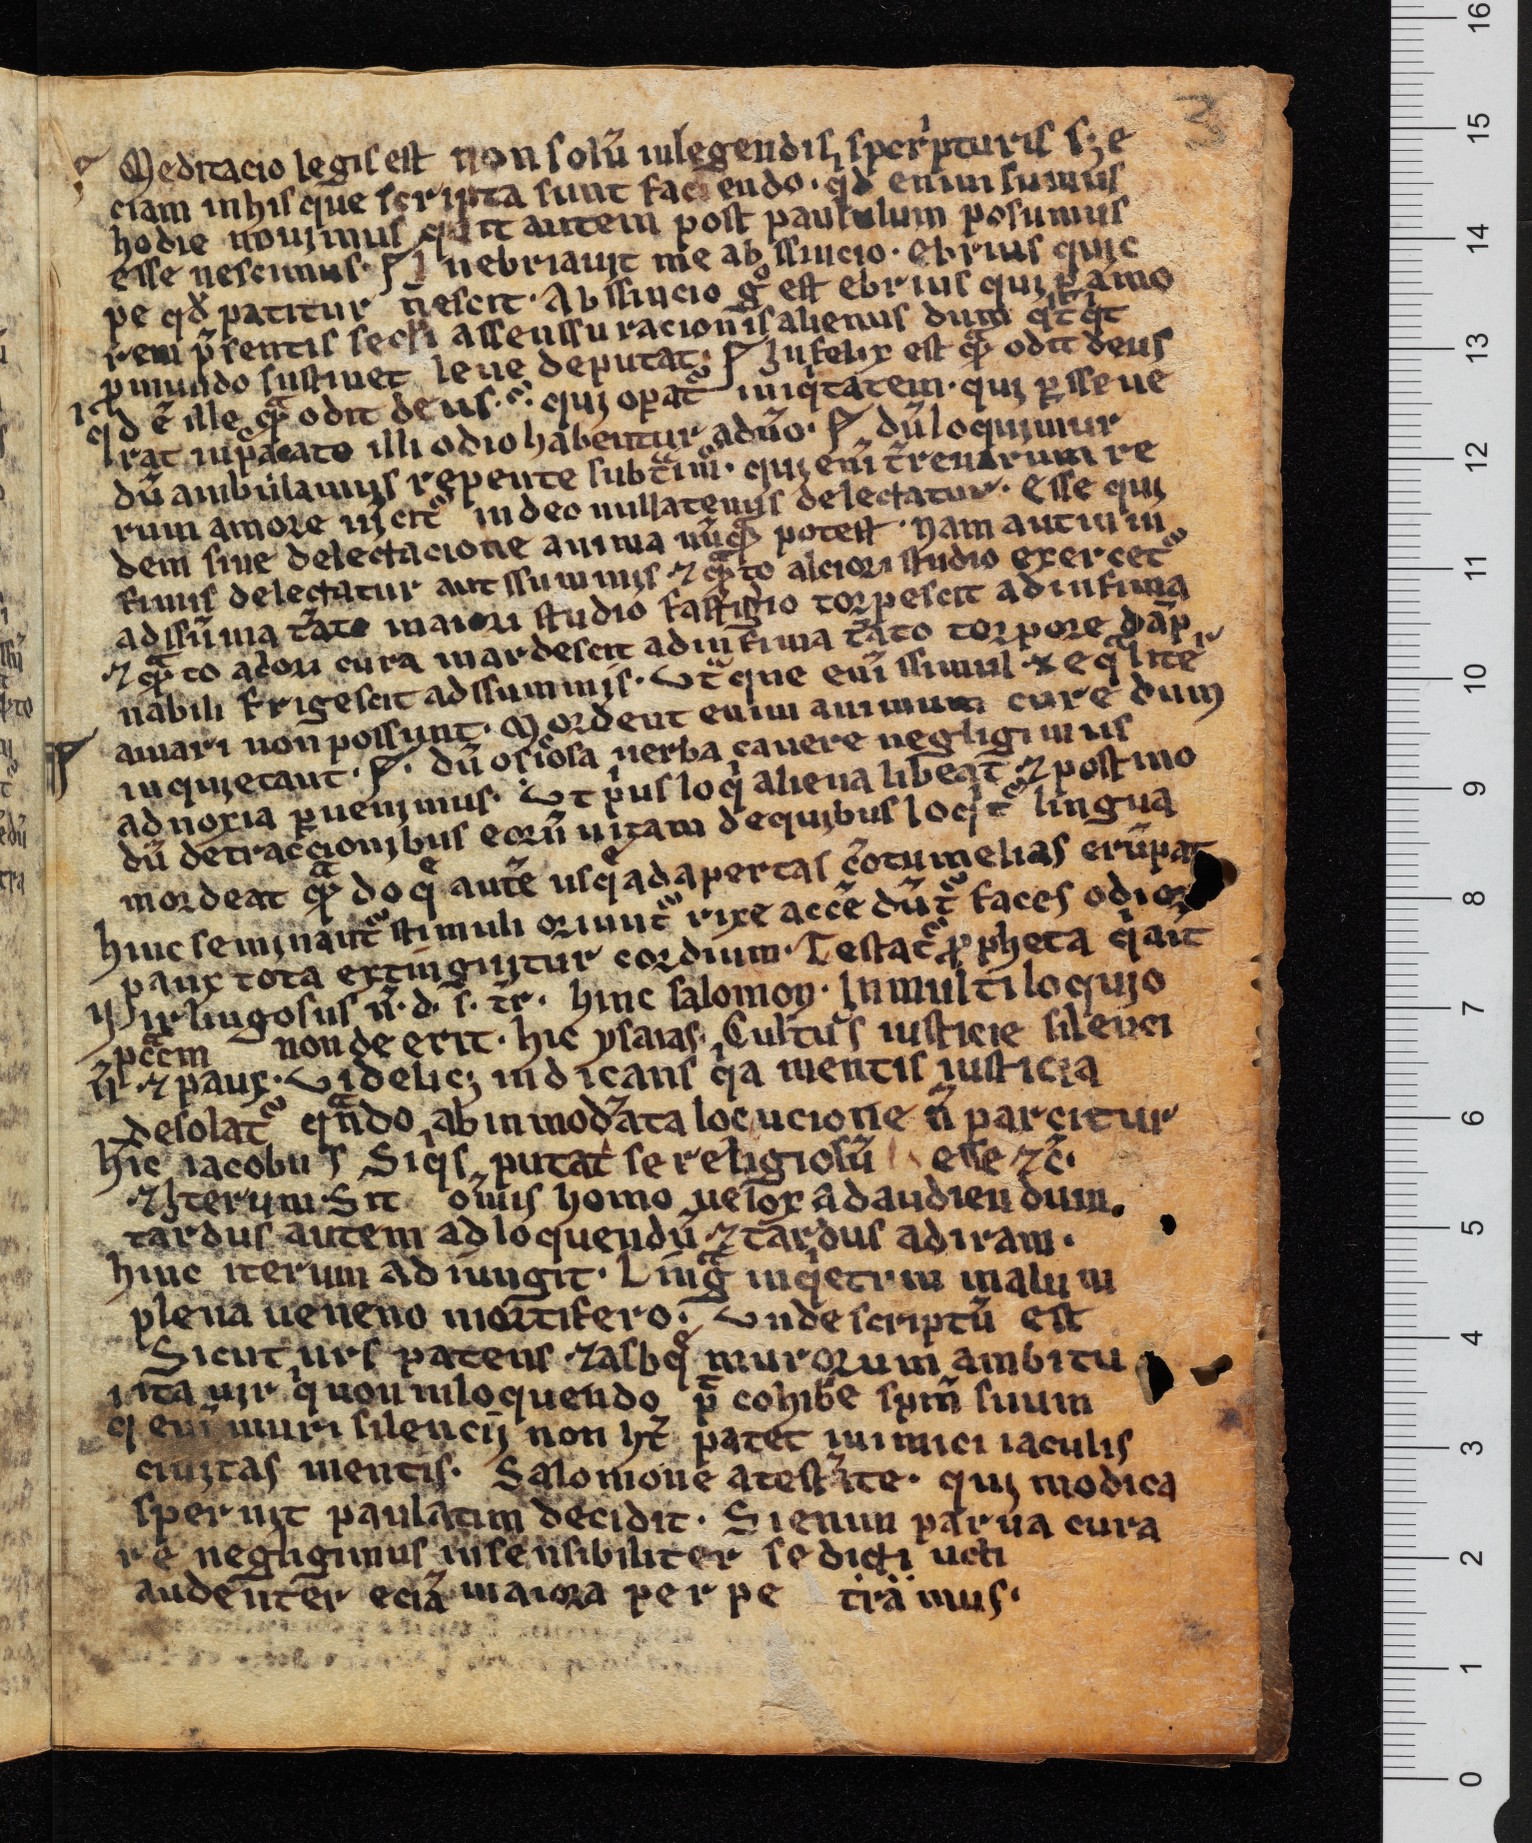 3
Meditacio legis est non solū in legendis scpͥpturis sꝫ e
ciam in his que scripta sunt faciendo · qͥd enim sumus
hodie nouimus qͥd autem post paululum posumus
esse nescimus · Inebriauit me abssincio · ebrius quic
pe qd patitur nescit · Abssincio gͦ est ebrius qui p amo
rem p̄sentis secli assenssu racionis alienus dum qͥcqͥt
ꝓ mundo sustinet leue deputat · Infelix est qͣ odit deus
qd ē ille qͣ odit deus · qui opat͛ iniqͥtatem · qui ꝑsseue
rat in pͨcato illi odio habentur a dn̄o · dū loquimur
dū ambulamus repente subtͣim᷒ · qui enī t̄renarum re
rum amore uīcit͛ in deo nullatenus delectatur · Esse qui
dem sine delectacione anima nūqͣ potest · Nam aut in in
fimis delectatur aut ssummis ⁊ qͣto alciori studio exercet͛
ad ssūma tāto maiori studio fastigio torpescit ad infima
⁊ qͣto acͦori cura inardescit ad infima tāto torpore dāp
nabili frigescit ad ssummis · Vtͣque enī ssimul ⁊ eqͣlite͛
amari non possunt · Mordent enim animum cure dum
inquietant · dū osiosa uerba cauere negligimus
ad noxia ꝑuenimus · Vt pͥus loqͥ aliena libeat ⁊ postmo
dū detraccionibus eorū uitam de quibus loqͥt͛ lingua
mordeat qͣndoqͤ autē usqͤ ad apertas cōtumelias erūpat
hinc seminant͛ stimuli oriunt͛ rixe accēdūt͛ faces odior
paux tota extinguitur cordium · Testat͛ ꝓpheta qͥ ait
Vir lingosus n̄ · d · s · tr · hinc salomon · In multiloquio
pccͣm non deerit · hic ysaias · Cultus iusticie silenci
ū ⁊ paux · Videlicꝫ indicans qͥa mentis iusticia
desolat͛ qͣndo ab inmodata locucione n̄ parcitur
hic iacobus Siqͥs putat se religiosū esse ⁊c̄ ·
⁊ Iterum · Sit omīs homo uelox ad audiendum ·
tardus autem ad loquendū ⁊ tardus ad iram ·
hinc iterum adiungit · Lingͣ inqͥetum malum
plena ueneno mortifero · Vnde scriptū est
Sicut urs patens ⁊ asbqͤ murorum ambitu
ita uir qͥ non in loquendo pͭ cohibe͛ spm̄ suum
qͥ enī muri silencij non ht͛ patet inimici iaculis
ciuitas mentis · Salomone atestāte · qui modica
spernit paulatim decidit · Si enim parua cura
re negligimus insensibiliter se dicti ucti
audenter eciā maiora perpe tramus ·